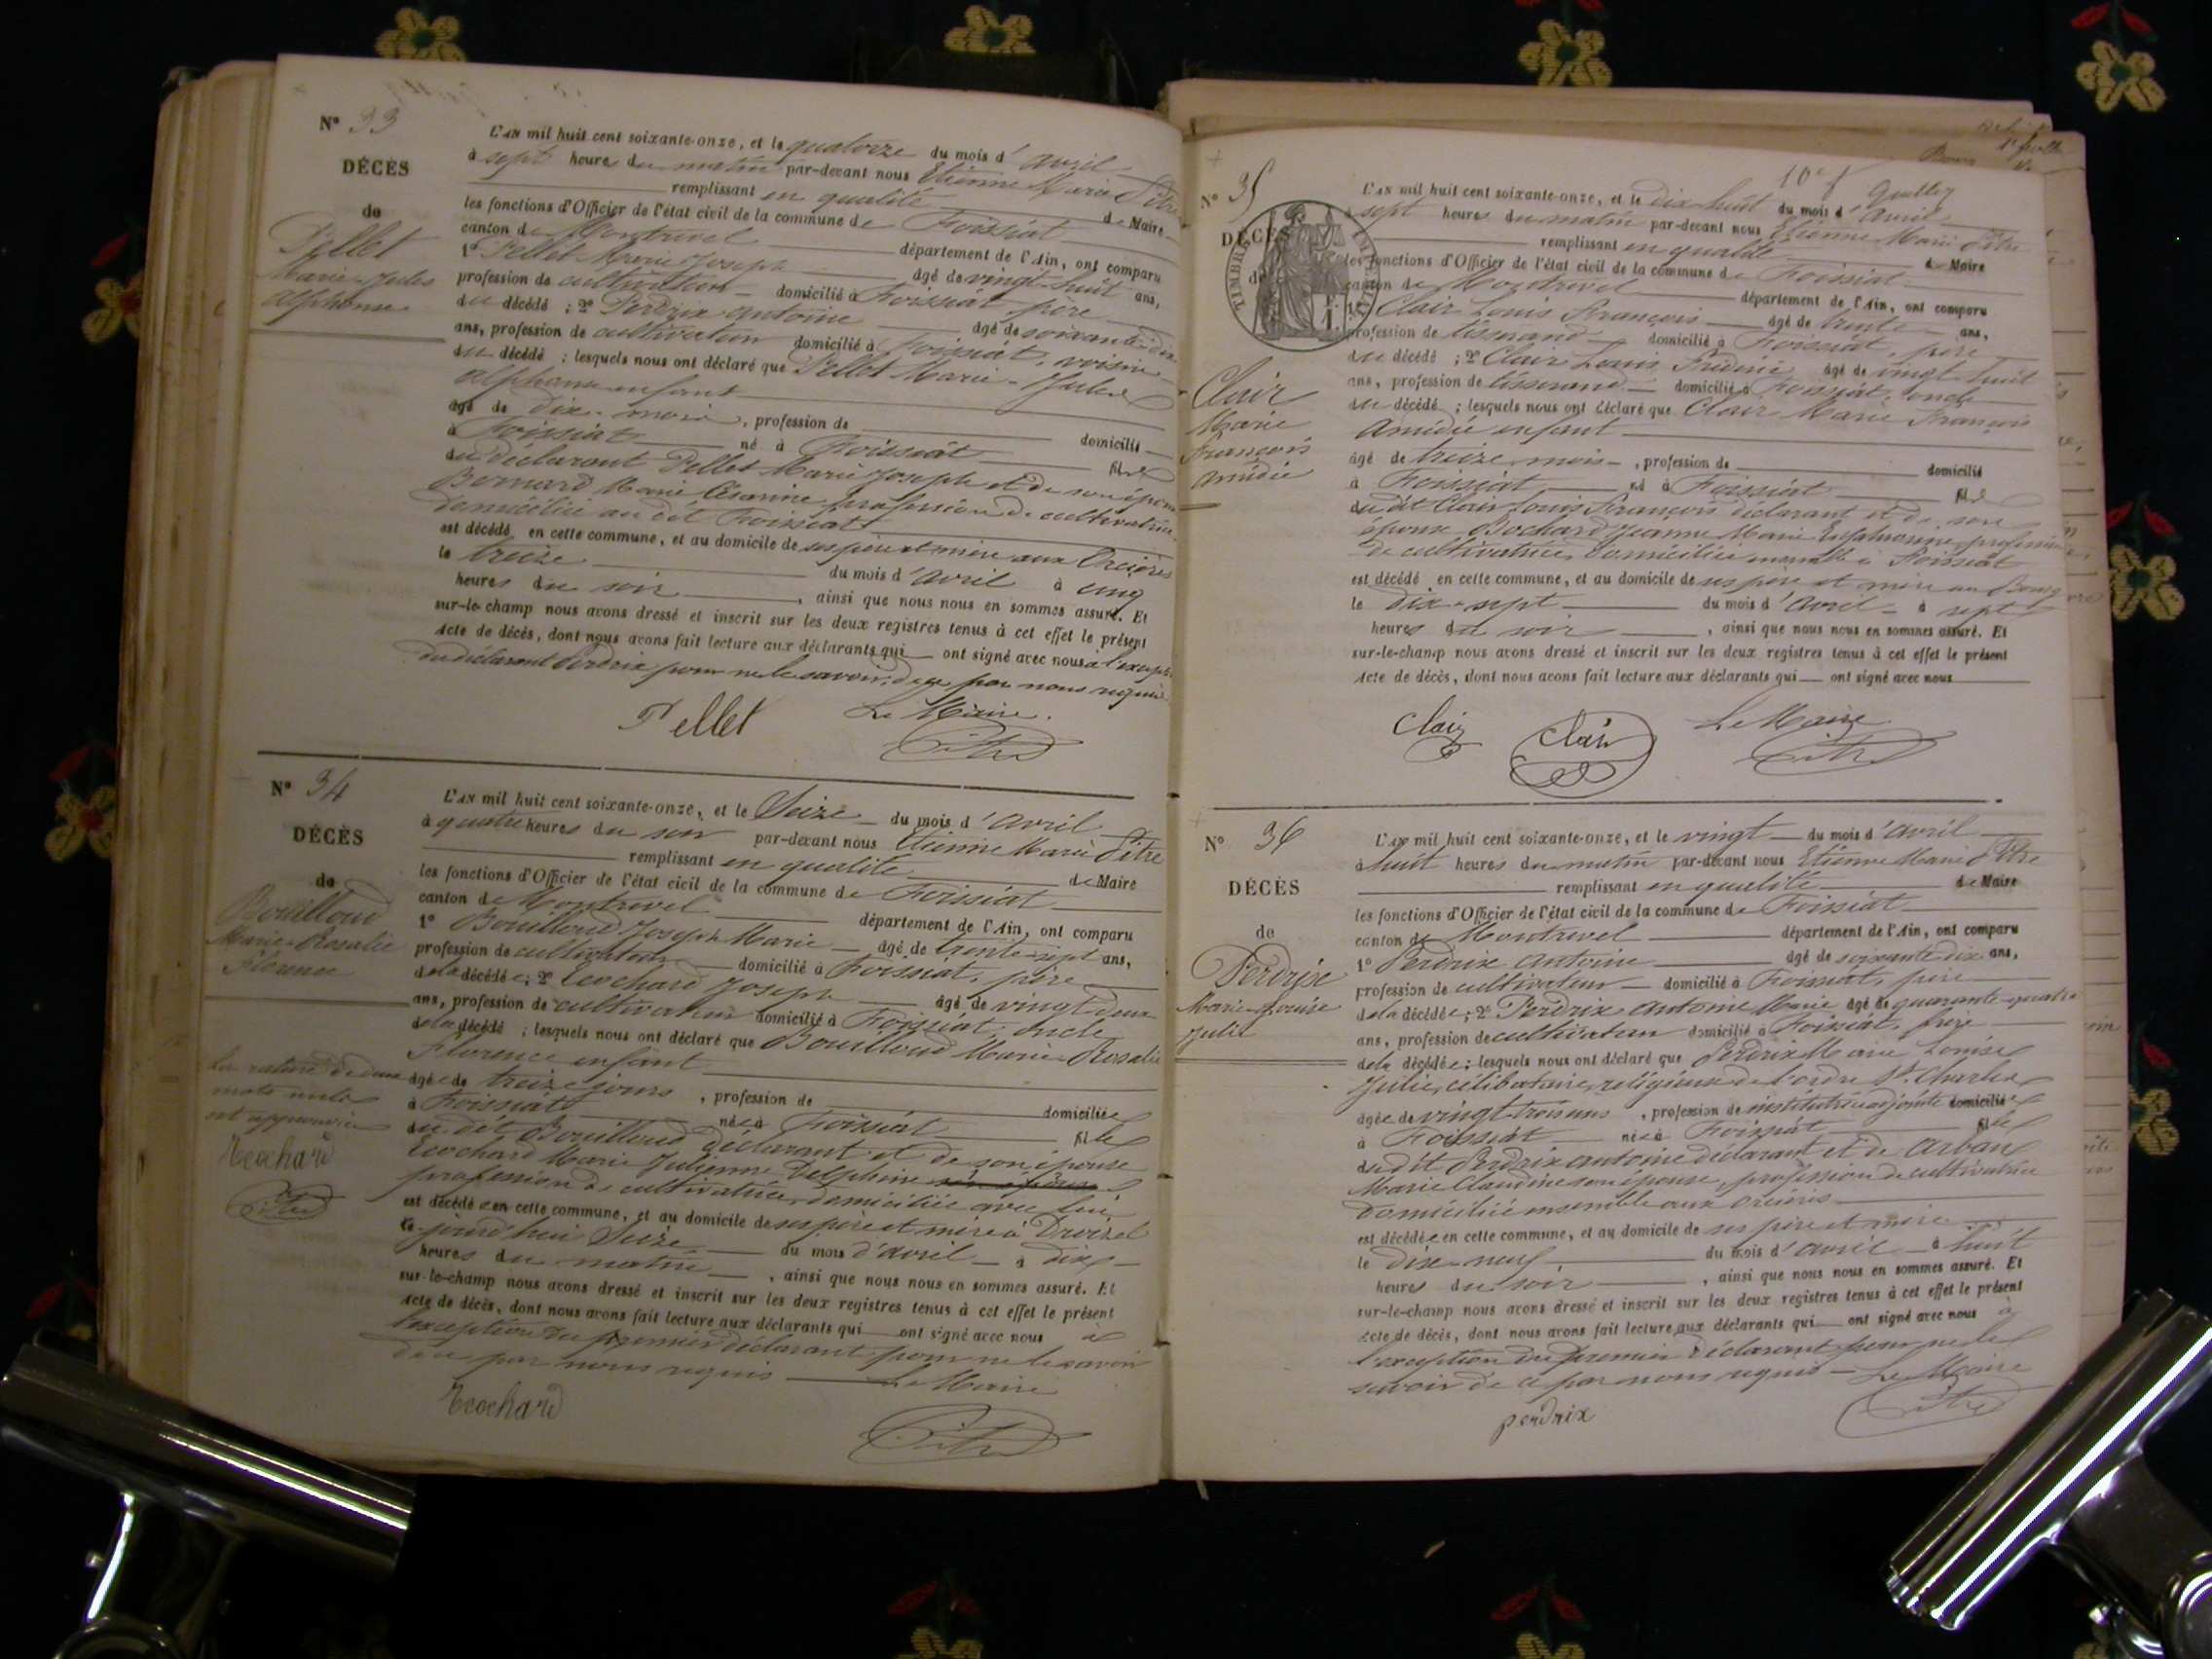 N° 33
DÉCÈS
de
Pellet
Marie-Jules
alphonse
L'AN mil huit cent soixante-onze, et le quatorze du mois d'avril
à sept heures du matin par-devant nous Etienne Marie Pitre
remplissant en qualité de Maire
les fonctions d'Officier de l'état civil de la commune de Foissiat
canton de Montrevel département de l'Ain, ont comparu
1° Pellet Marie Joseph âgé de vingt-huit ans,
profession de cultivateur domicilié à Foissiat père
du décédé ; 2° Perdrix antoine âgé de soixante-dix
ans, profession de cultivateur domicilié à Foissiat, voisin
du décédé ; lesquels nous ont déclaré que Pellet Marie-Jules
alphonse enfant
âgé de dix-mois, profession de domicilié
à Foissiat né à Foissiat fils
du déclarant Pellet Marie Joseph et de son épouse
Bernard Marie Césarine profession de cultivatrice
domiciliée au dit Foissiat
est décédé en cette commune, et au domicile de ses père et mère aux Orcières
le treize du mois d'avril à cinq
heures du soir, ainsi que nous nous en sommes assuré. Et
sur-le-champ nous avons dressé et inscrit sur les deux registres tenus à cet effet le présent
Acte de décès, dont nous avons fait lecture aux déclarants qui ont signé avec nous
du déclarant Perdrix pour ne le savoir, de ce par nous requis
Pellet Le Maire.
Pitre
N° 34
DÉCÈS
de
Bouilloud
Marie-Rosalie
Florence
L'AN mil huit cent soixante-onze, et le Seize du mois d'avril
à quatre heures du soir par-devant nous Etienne Marie Pitre
remplissant en qualité de Maire
les fonctions d'Officier de l'état civil de la commune de Foissiat
canton de Montrevel département de l'Ain, ont comparu
1° Bouilloud Joseph Marie âgé de trente-sept ans,
profession de cultivateur domicilié à Foissiat, père
de la décédée ; 2° Ecochard Joseph âgé de vingt-deux
ans, profession de cultivateur domicilié à Foissiat, oncle
de la décédé ; lesquels nous ont déclaré que Bouilloud Marie-Rosalie
Florence enfant
âgée de treize jours, profession de domiciliée
à Foissiat née à Foissiat fille
du dit Bouilloud déclarant et de son épouse
Ecochard Marie Julienne Delphine son épouse
profession de cultivatrice, domiciliée avec lui
est décédée en cette commune, et au domicile de ses père et mère à
ce jourd'hui Seize du mois d'avril à dix
heures du matin, ainsi que nous nous en sommes assuré. Et
sur-le-champ nous avons dressé et inscrit sur les deux registres tenus à cet effet le présent
Acte de décès, dont nous avons fait lecture aux déclarants qui ont signé avec nous à
l'exception du premier déclarant pour ne le savoir
de ce par nous requis Le Maire
Ecochard Pitre
la rature de deux
mots nuls
est approuvée
Ecochard
Pitre
N° 35
DÉCÈS
de
Clair
Marie
François
amédée
TIMBRE
L'AN mil huit cent soixante-onze, et le dix-huit du mois d'avril
à sept heures du matin par-devant nous Etienne Marie Pitre
remplissant en qualité de Maire
les fonctions d'Officier de l'état civil de la commune de Foissiat
canton de Montrevel département de l'Ain, ont comparu
1° Clair Louis François âgé de trente ans,
profession de tisserand domicilié à Foissiat, père
du décédé ; 2° Clair Louis Frédéric âgé de vingt-huit
ans, profession de tisserand domicilié à Foissiat, oncle
du décédé ; lesquels nous ont déclaré que Clair Marie François
Amédée enfant
âgé de treize mois, profession de domicilié
à Foissiat né à Foissiat fils
du dit Clair Louis François déclarant et de son
épouse Bochard Jeanne Marie Euphrosine profession
de cultivatrice domiciliée ensemble à Foissiat
est décédé en cette commune, et au domicile de ses père et mère au Bourg
le dix-sept du mois d'avril à sept
heures du soir, ainsi que nous nous en sommes assuré. Et
sur-le-champ nous avons dressé et inscrit sur les deux registres tenus à cet effet le présent
Acte de décès, dont nous avons fait lecture aux déclarants qui ont signé avec nous
Clair Clair Le Maire
Pitre
N° 36
DÉCÈS
de
Perdrix
Marie-Louise
Julie
L'AN mil huit cent soixante-onze, et le vingt du mois d'avril
à huit heures du matin par-devant nous Etienne Marie Pitre
remplissant en qualité de Maire
les fonctions d'Officier de l'état civil de la commune de Foissiat
canton de Montrevel département de l'Ain, ont comparu
1° Perdrix Antoine âgé de soixante dix ans,
profession de cultivateur domicilié à Foissiat, père
de la décédée ; 2° Perdrix antoine Marie âgé de quarante-quatre
ans, profession de cultivateur domicilié à Foissiat, frère
de la décédée ; lesquels nous ont déclaré que Perdrix Marie Louise
Julie, célibataire, religieuse de l'ordre St Charles
âgée de vingt-trois ans, profession de institutrice adjointe domiciliée
à Foissiat née à Foissiat fille
du dit Perdrix antoine déclarant et de Arban
Marie Claudine son épouse, profession de cultivatrice
domiciliée ensemble aux Orcières
est décédée en cette commune, et au domicile de ses père et mère
le dix-neuf du mois d'avril à huit
heures du soir, ainsi que nous nous en sommes assuré. Et
sur-le-champ nous avons dressé et inscrit sur les deux registres tenus à cet effet le présent
Acte de décès, dont nous avons fait lecture aux déclarants qui ont signé avec nous à
l'exception du premier déclarant pour ne le
savoir de ce par nous requis Le Maire
perdrix Pitre